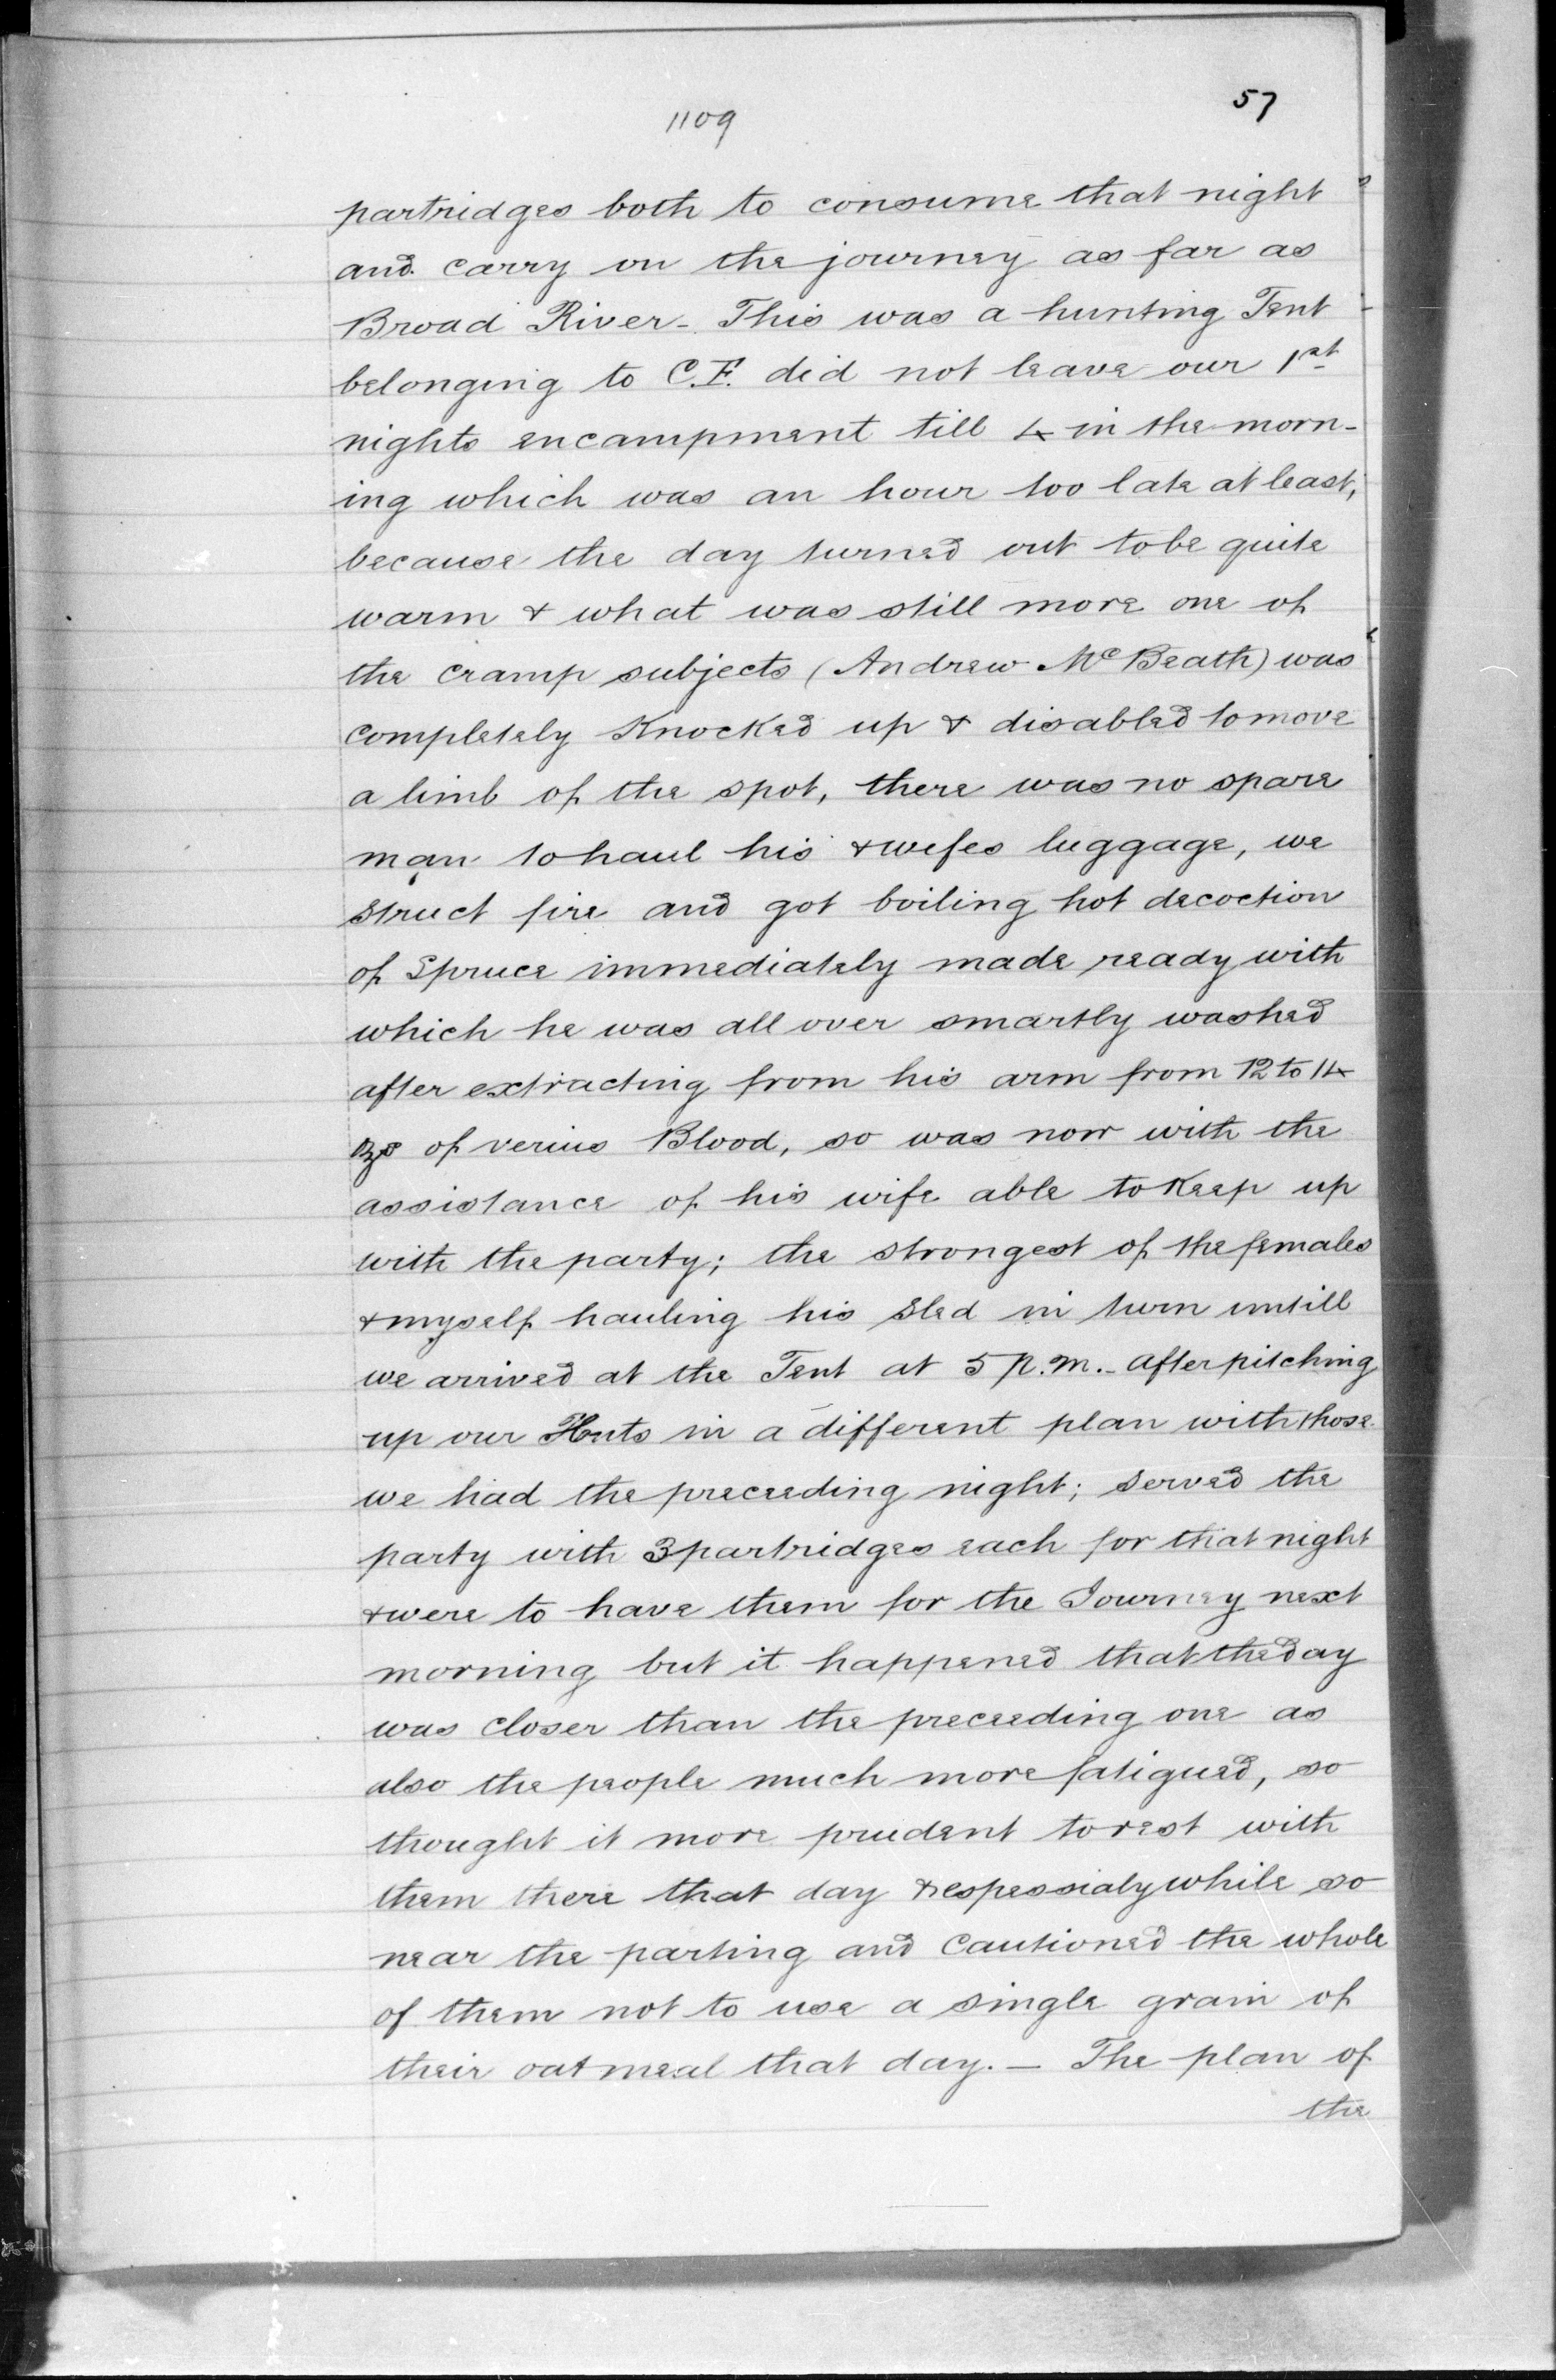 57
1109
partridges both to consume that night
and carry on the journey as far as
Broad River - This was a hunting Tent
belonging to C.F. did not leave our 1st
nights encampment till 4 in the morn-
ing which was an hour too late at least,
because the day turned out to be quite
warm & what was still more one of
the cramp subjects (Andrew McBeath) was
completely Knocked up & disabled to move
a limb of the spot, there was no spare
man to haul his & wifes luggage, we
struct fire and got boiling hot decoction
of Spruce immediately made ready with
which he was all over smartly washed
after extracting from his arm from 12 to 14
of verius Blood, so was now with the
assistance of his wife able to Keep up
with the party; the strongest of the females
& myself hauling his Sled in turn untill
we arrived at the Tent at 5 P.M. - after pitching
up our Huts in a different plan with those
we had the preceeding night; served the
party with 3 partridges each for that night
& were to have them for the Journey next
morning but it happened that the day
was closer than the preceeding one as
also the people much more fatigued, so
thought it more prudent to rest with
them there that day & espessialy while so
near the parting and cautioned the whole
of them not to use a single grain of
their oatmeal that day. - The plan of
the